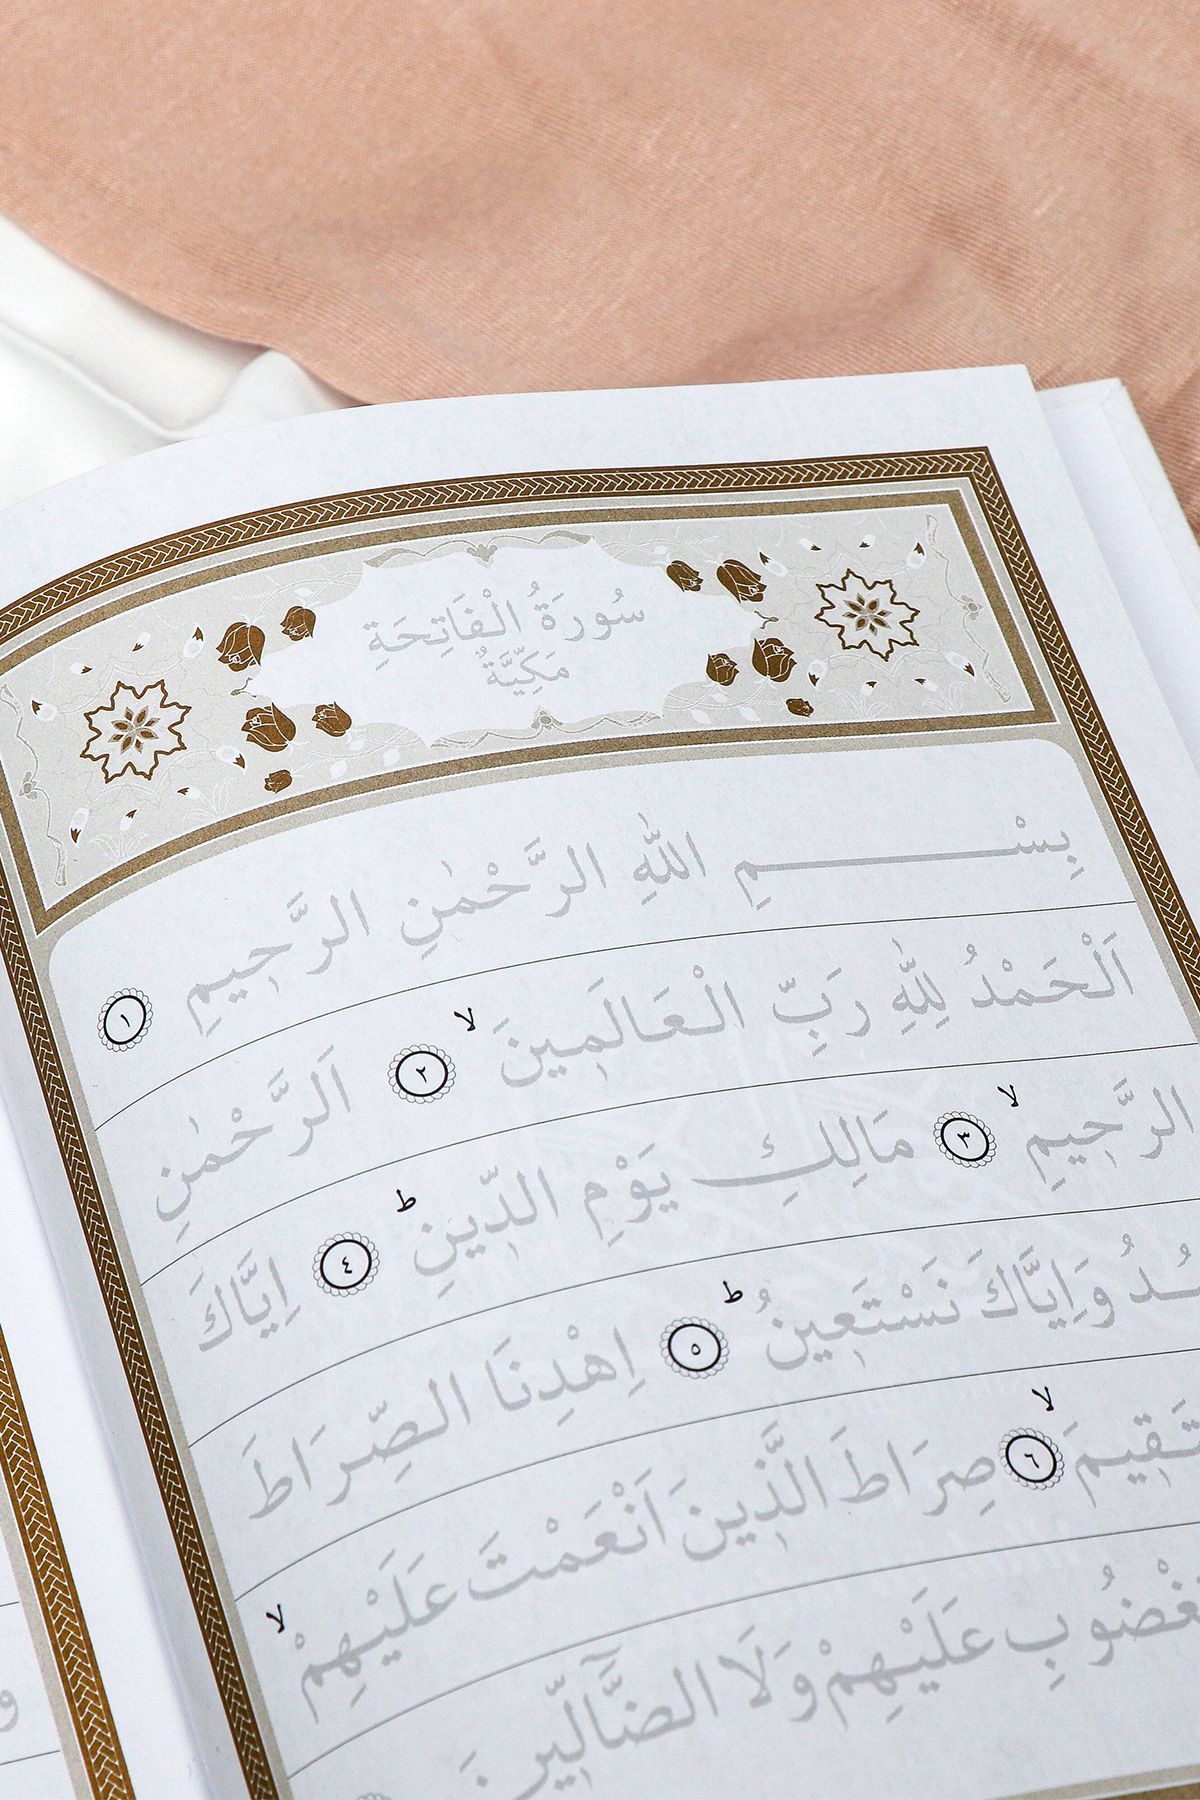 سُورَةُ الْفَاتِحَةِ
مَكِّيَّةٌ
بِسْــــــمِ اللّٰهِ الرَّحْمٰنِ الرَّحِيمِ ١
اَلْحَمْدُ لِلّٰهِ رَبِّ الْعَالَمِينَ لا ٢ اَلرَّحْمٰنِ
الرَّحِيمِ لا ٣ مَالِكِ يَوْمِ الدِّينِ ط ٤ اِيَّاكَ
وَاِيَّاكَ نَسْتَعِينُ ط ٥ اِهْدِنَا الصِّرَاطَ
لا ٦ صِرَاطَ الَّذِينَ اَنْعَمْتَ عَلَيْهِمْ لا
عَلَيْهِمْ وَلَا الضَّٓالِّينَ